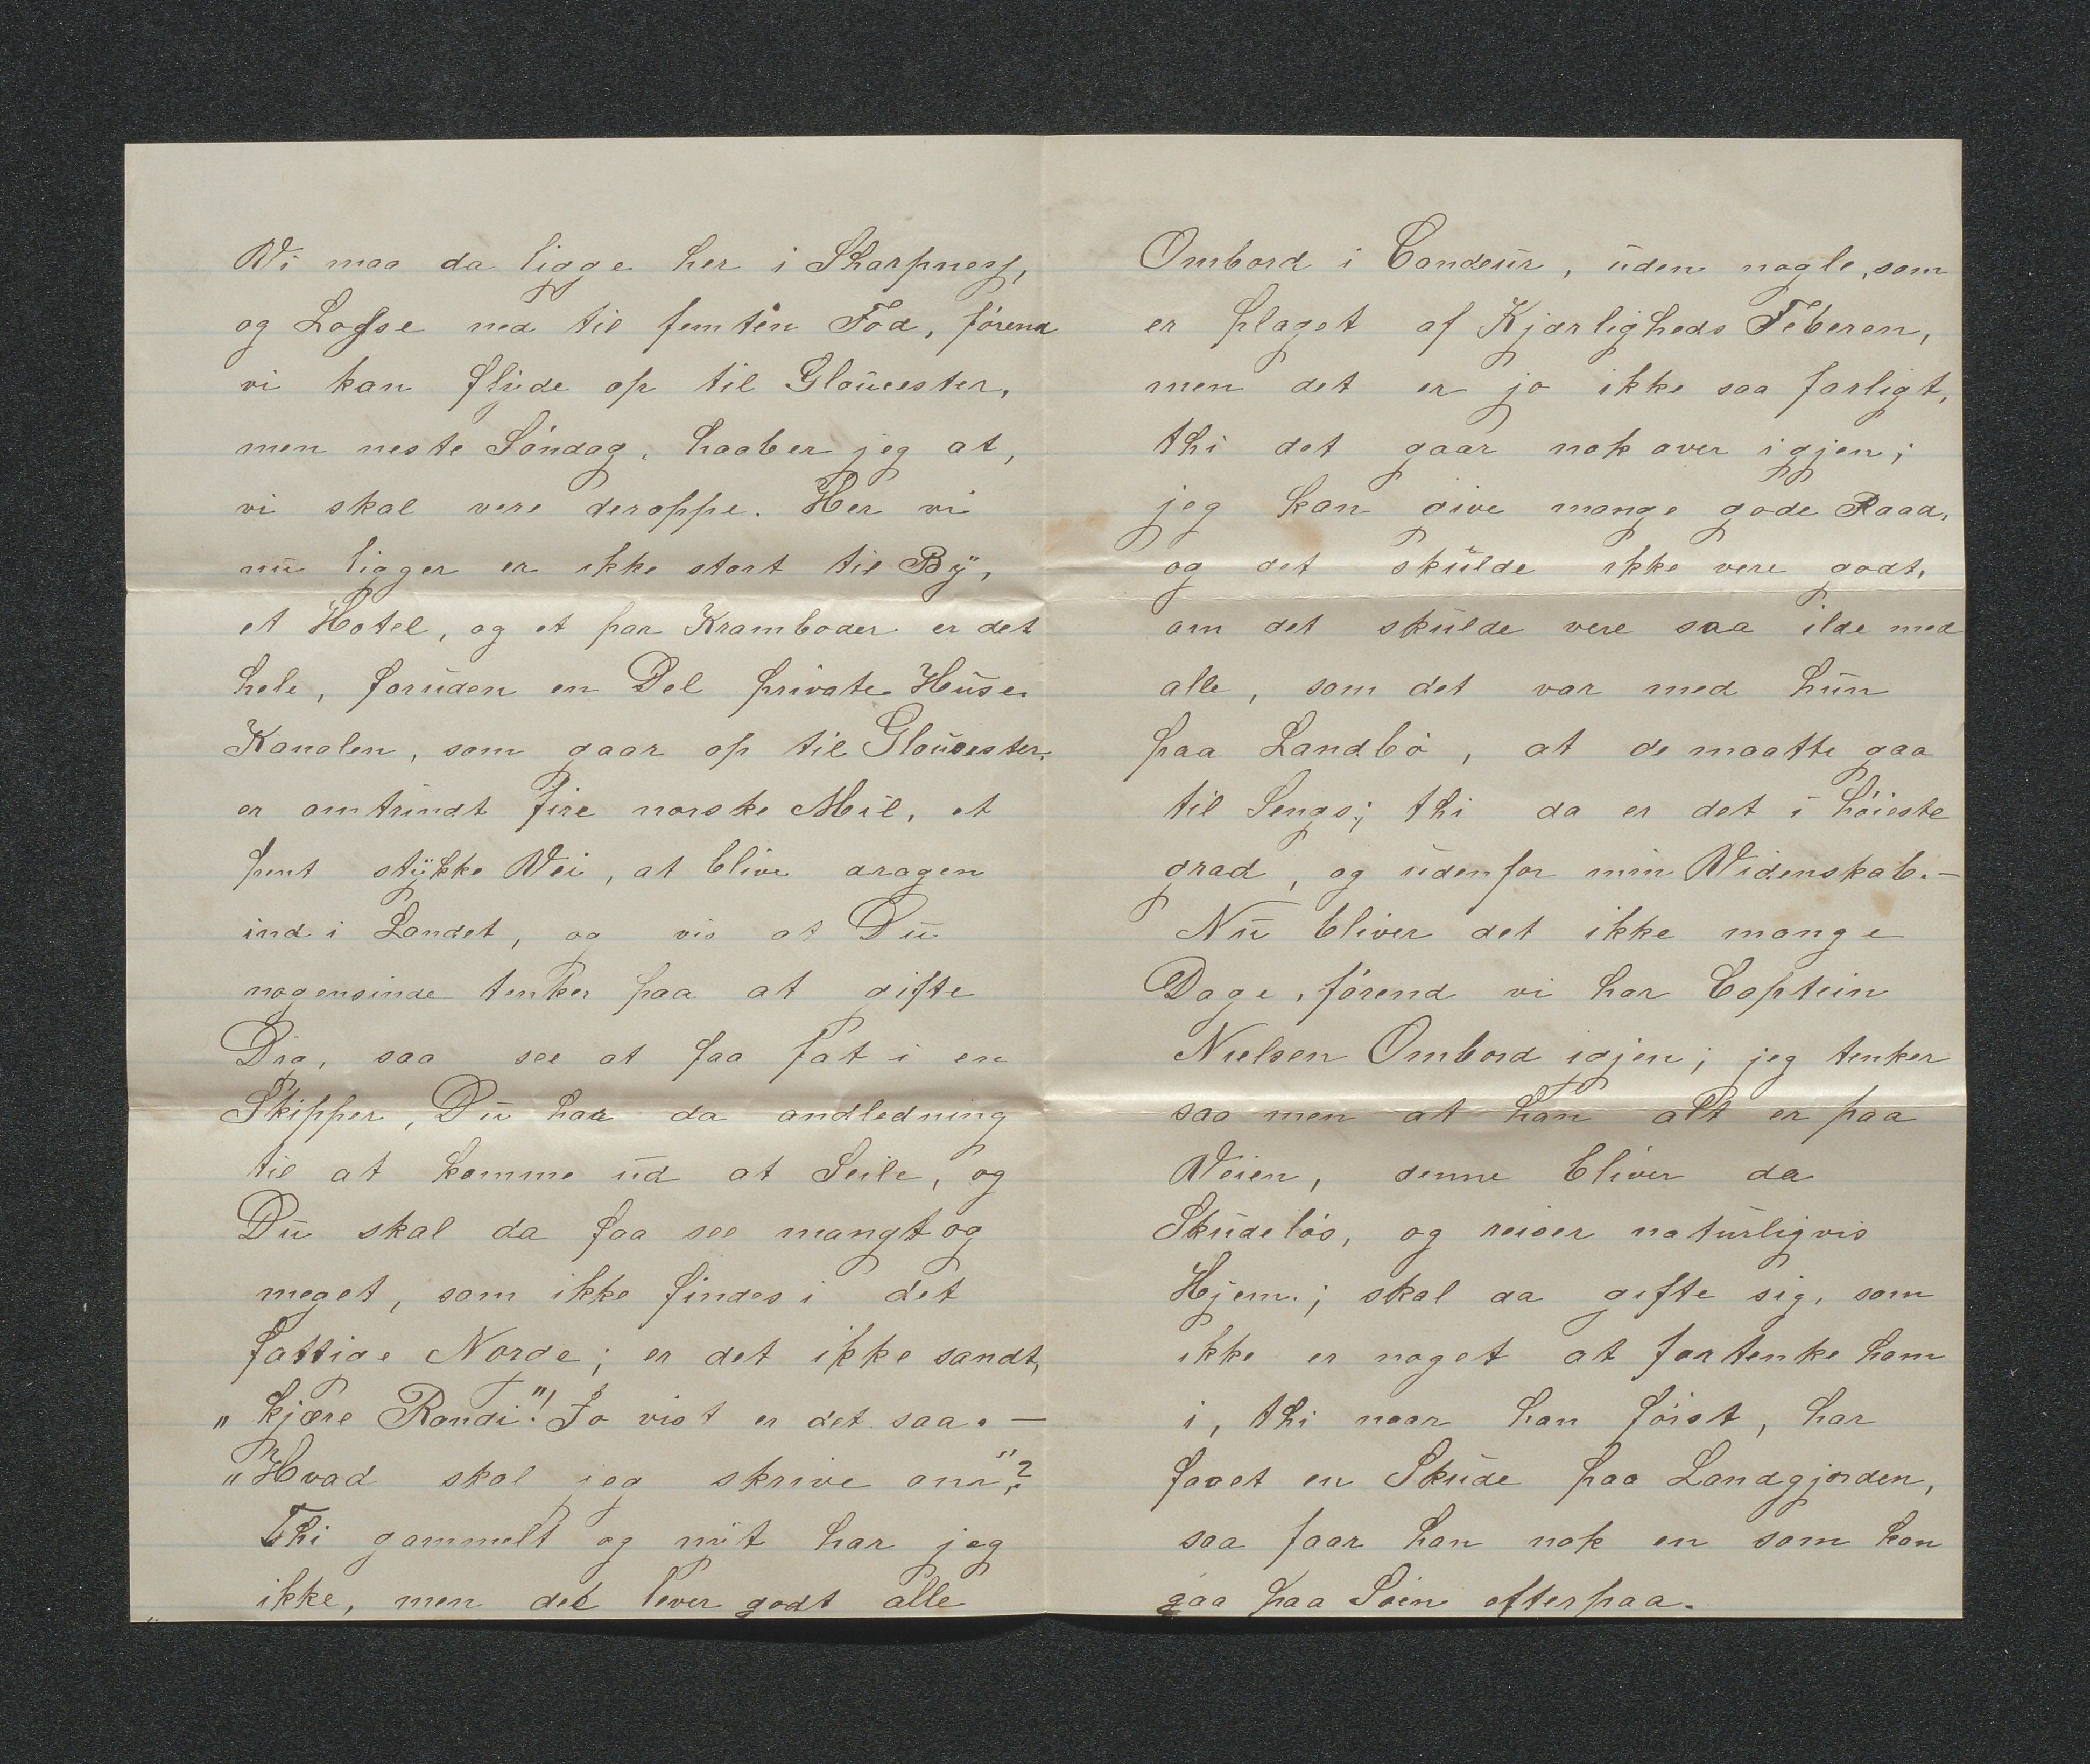 Vi maa da ligge her i Sharpness,
og Losse ned til femten Fod, førend
vi kan flyde op til Gloucester,
men neste Søndag, haaber jeg at,
vi skal vere deroppe. Her vi
nu ligger er ikke stort til By,
et Hotel, og et par Kramboder er det
hele, foruden en Del private Huse.
Kanalen, som gaar op til Gloucester.
er omtrindt fire norske Mil, et
pent stykke Vei, at blive dragen
ind i Landet, og vis at Du
nogensinde tenker paa at gifte
Dig, saa see at faa fat i en
Skipper, Du har da andledning
til at komme ud at Seile, og
Du skal da faa see mangt og
meget, som ikke findes i det
fattige Norge; er det ikke sandt,
„kjære Randi"! Jo vist er det saa. —
„Hvad skal jeg skrive om"?
Thi gammelt og nyt har jeg
ikke, men det lever godt alle
Ombord i Condeur, uden nogle, som
er plaget af Kjærligheds Feberen,
men det er jo ikke saa farligt,
thi det gaar nok over igjen;
jeg kan give mange gode Raad,
og det skulde ikke vere godt,
om det skulde vere saa ilde med
alle, som det var med hun
paa Landbø, at de maatte gaa
til Sengs; thi da er det i høieste
grad, og udenfor min Videnskab. —
Nu bliver det ikke mange
Dage, førend vi har Captein
Nielsen Ombord igjen; jeg tenker
saa men at han alt er paa
Veien, denne bliver da
Skudeløs, og reiser naturligvis
Hjem; skal da gifte sig, som
ikke er noget at fortenke ham
i, thi naar han føist, har
faaet en Skude paa Landgjorden,
saa faar han nok en som kan
gaa paa Søen efterpaa.